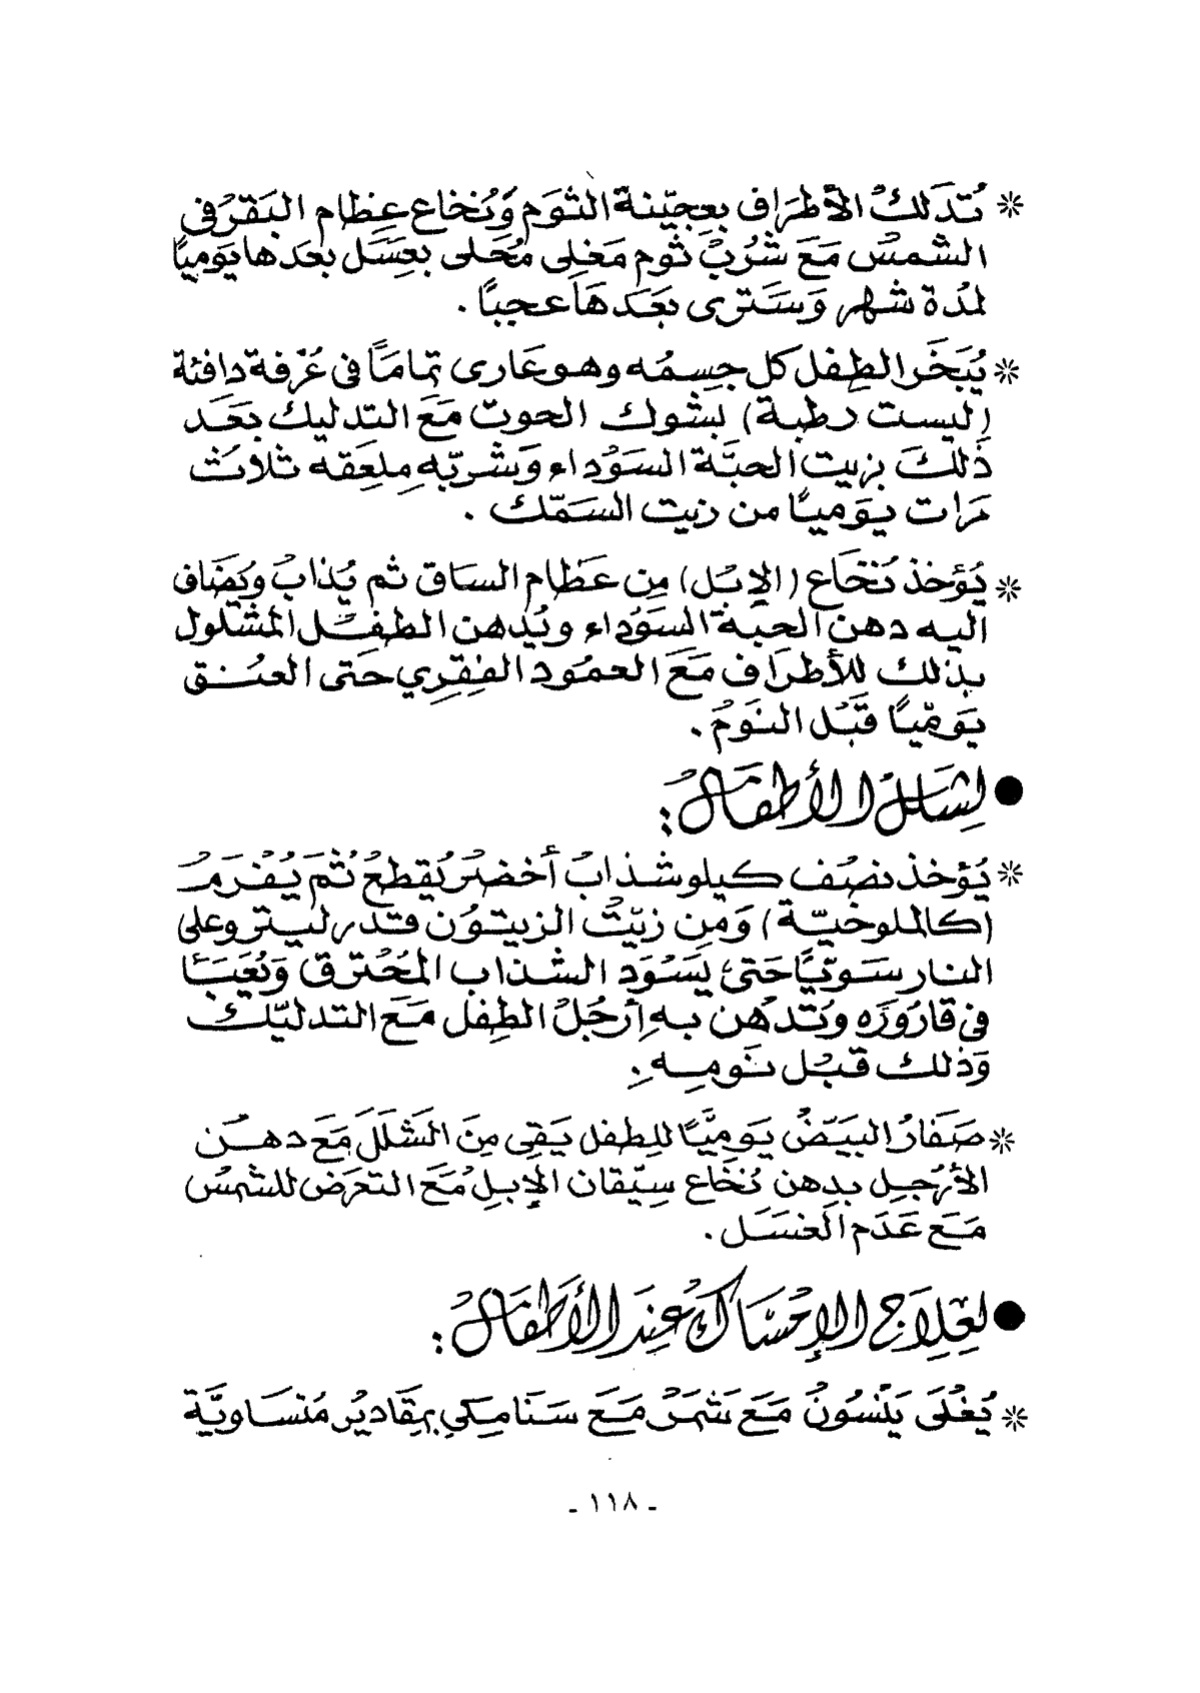 * تُدَلكُ الأطرَاف بِعِجّينة الثوَم وَنُخاع عِظام البَقرُفى
الشمسُ مَعَ شُربْ ثوم مَغلى مُحَلى بعِسَل بعدها يَوميًا
لمدُة شهر وَسَتَرى بَعَدهَا عجبًا .
* يُبَخَر الطِفل كل جِسِمُه وهو عَارى تمامَاً فى غُرفة دافئة
(ليست رطبة) بشوك الحوت مَعَ التدليك بعَد
ذَلكَ بزيت الحبَّة السَوُداء وَشربّهِ مِلعَقه ثلاثَ
مَرات يوَميًا من زيت السَمّك .
* يُؤخذ نُخَاع (الإبل) مِن عَظام السَاق ثم يُذابَ وَيَضَاف
اليه دهن الحَبة السَوُداء ويُدهن الطفل المشلول
بذلك للأطرَاف مَعَ العمُود الفِقِرِي حَتى العنُق
يَومْيًا قَبُل النَومُ .
● لِشَلل الأطفَالُ :
* يُؤخذ نصُف كيلو شذابُ أخضرُ يُقطعُ ثُمَ يُفرَمُ
(كالملوخيّة) وَمِن زيّتُ الزيتوُن قدر ليترَ وعلى
النار سَويًا حَتئ يَسَوُد الشذاب المُحُترق وَيُعَبَأ
فى قارُوَرَه وَتدُهن به أرُجلُ الطِفل مَعَ التدليّك
وَذلك قَبُل نَومِهِ .
* صَفارُ البَيَضُ يَومَيًا للِطفل يَقِى مِنَ الشَلَلَ مَعَ دهن
الأرُجِل بدِهن نُخَاع سِيّقان الإبلِ مُعَ التعَرَض للشمسُ
مَعَ عَدَم الغسَل .
● لعِلِاَج الإمُسَاكُ عِندَ الأطَفَالُ :
* يُغُلَى يَنُسُونُ مَعَ شمَرُ مَعَ سَنَا مِكي بمِقَاديُر مُتسَاويَّة
- ١١٨ -